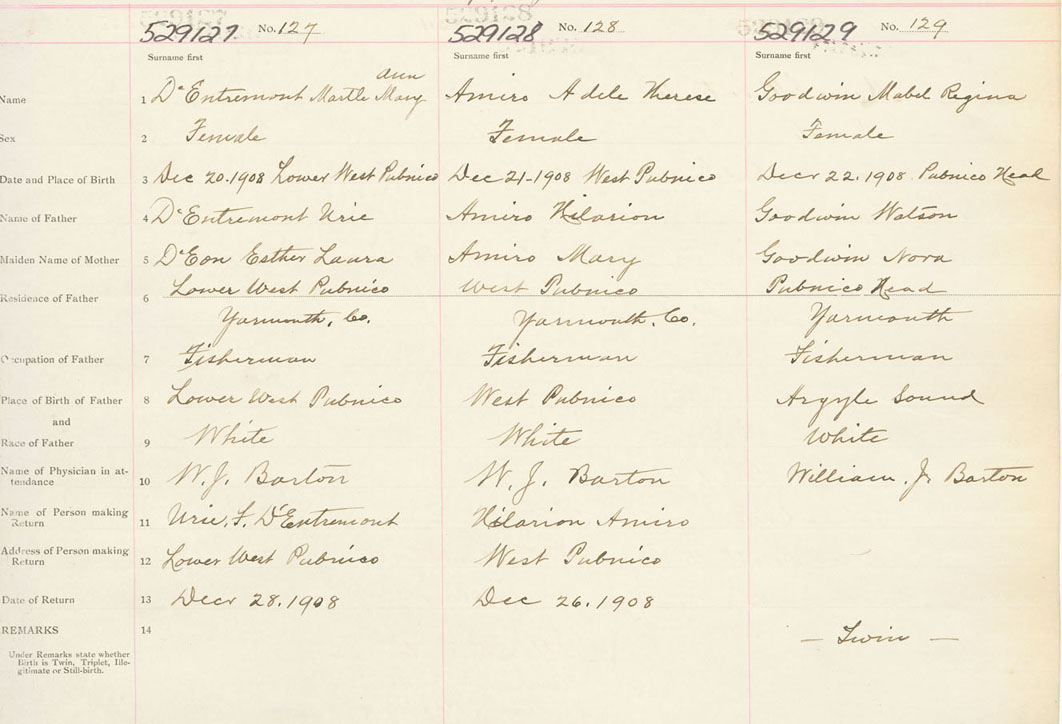 529127 No. 127 529128 No. 128 529129 No. 129
Surname first Surname first Surname first
Ann
Name 1 D'Entremont Martle Mary Amiro Adele Therese Goodwin Mabel Regina
Sex 2 Female Female Female
Date and Place of Birth 3 Dec 20.1908 Lower West Pubnico Dec 21-1908 West Pubnico Decr 22.1908. Pubnico Head
Name of Father 4 D'Entremont Urie Amiro Hilarion Goodwin Watson
Maiden Name of Mother 5 D'Eon Esther Laura Amiro Mary Goodwin Nora
Residence of Father 6 Lower West Pubnico West Pubnico Pubnico Head
Yarmouth, Co. Yarmouth, Co. Yarmouth
Occupation of Father 7 Fisherman Fisherman Fisherman
Place of Birth of Father 8 Lower West Pubnico West Pubnico Argyle Sound
and
Race of Father 9 White White White
Name of Physician in at-
tendance 10 W. J. Barton W. J. Barton William. J. Barton
Name of Person making
Return 11 Urie, F. D'Entremont Hilarion Amiro
Address of Person making
Return 12 Lower West Pubnico West Pubnico
Date of Return 13 Decr 28.1908 Dec 26.1908
REMARKS 14
— Twin —
Under Remarks state whether
Birth is Twin, Triplet, Ille-
gitimate or Still-birth.